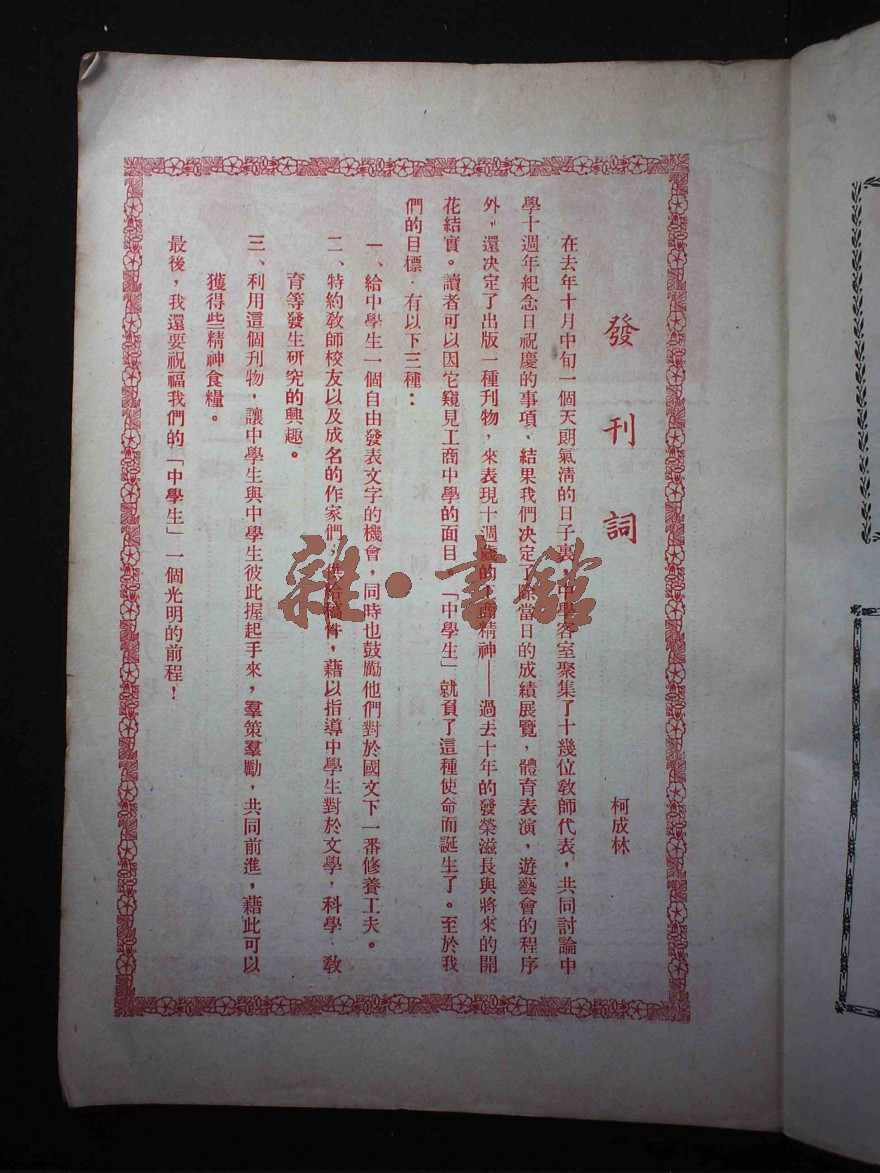 發刊詞
柯成林
在去年十月中旬一個天朗氣清的日子裏,中學客室聚集了十幾位敎師代表,共同討論中
學十週年紀念日祝慶的事項,結果我們决定了除當日的成績展覽,體育表演,遊藝會的程序
外,還决定了出版一種刊物,來表現十週歲的工商精神——過去十年的發榮滋長與將來的開
花結實。讀者可以因它窺見工商中學的面目,「中學生」就負了這種使命而誕生了。至於我
們的目標,有以下三種:
一、給中學生一個自由發表文字的機會,同時也鼓勵他們對於國文下一番修養工夫。
二、特約敎師校友以及成名的作家們,供給稿件,藉以指導中學生對於文學,科學,敎
育等發生研究的興趣。
三、利用這個刊物,讓中學生與中學生彼此握起手來,羣策羣勵,共同前進,藉此可以
獲得些精神食糧。
最後,我還要祝福我們的「中學生」一個光明的前程!
雜·書館